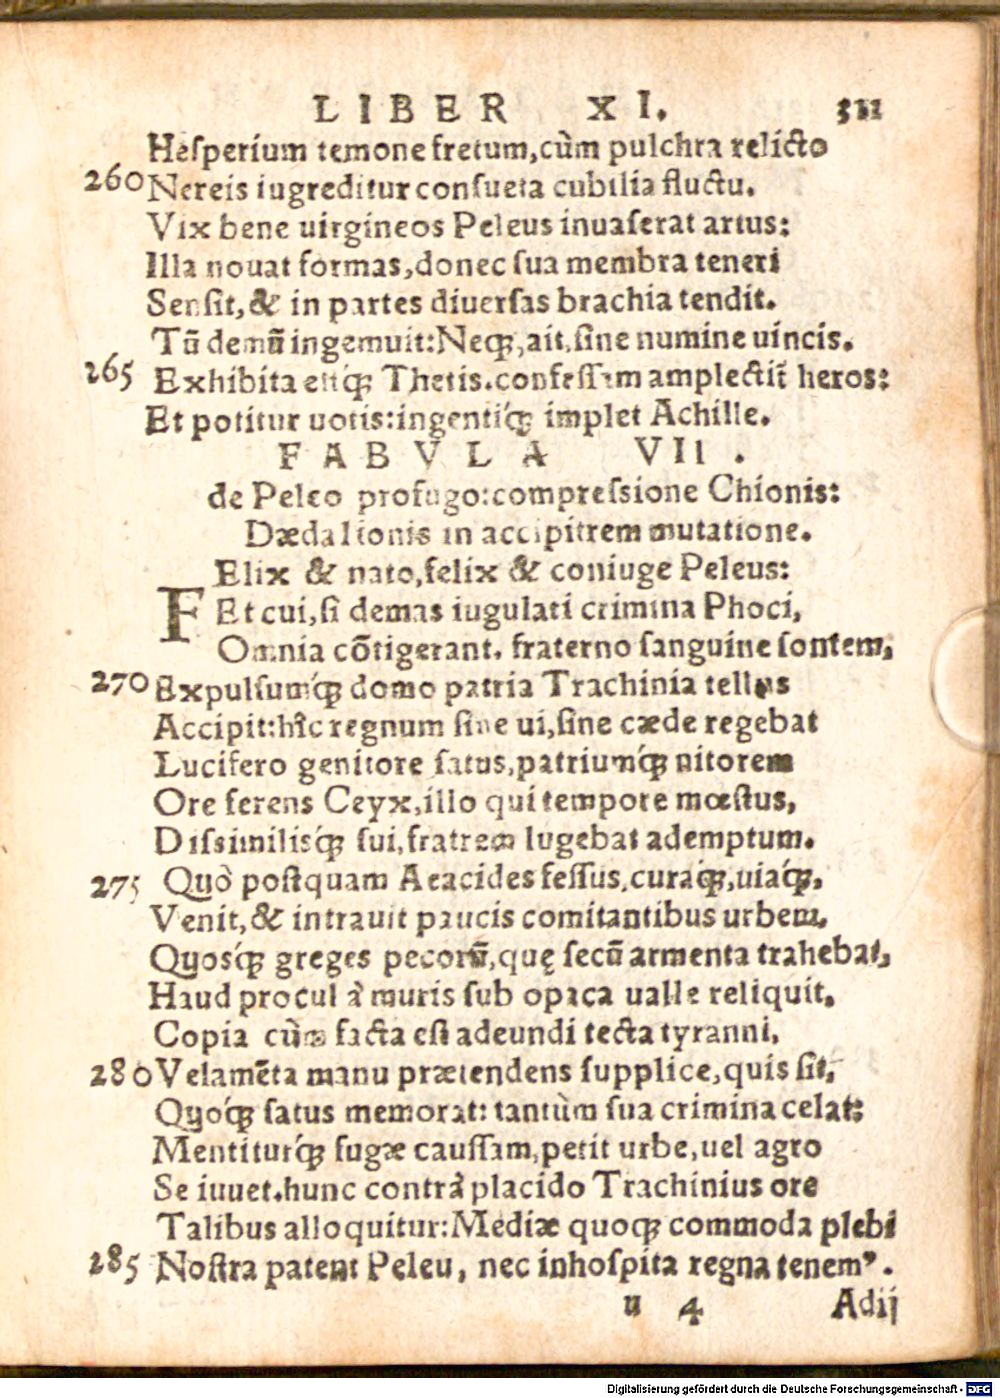 LIBER XI. 311
Hesperium temone fretum,cùm pulchra relicto
260 Nereis iugreditur consueta cubilia fluctu.
Vix bene uirgineos Peleus inuaserat artus:
Illa nouat formas,donec sua membra teneri
Sensit,& in partes diuersas brachia tendit.
Tū demū ingemuit:Neq;,ait,sine numine uincis.
265 Exhibita estq́; Thetis.confessam amplectit̃ heros:
Et potitur uotis:ingentiq́; implet Achille.
FABVLA VII.
de Peleo profugo:compressione Chionis:
Dædalionis in accipitrem mutatione.
FElix & nato,felix & coniuge Peleus:
Et cui,si demas iugulati crimina Phoci,
Omnia cōtigerant. fraterno sanguine sontem,
270 Expulsumq́; domo patria Trachinia tellus
Accipit:hîc regnum sine ui,sine cæde regebat
Lucifero genitore satus,patriumq́; nitorem
Ore ferens Ceyx,illo qui tempore mœstus,
Dissimilisq́; sui,fratrem lugebat ademptum.
275 Quò postquam Aeacides fessus,curaq́;,uiaq́;,
Venit,& intrauit paucis comitantibus urbem.
Quosq́; greges pecorū,quę secū armenta trahebat,
Haud procul à muris sub opaca ualle reliquit.
Copia cùm facta est adeundi tecta tyranni,
280 Velamēta manu prætendens supplice,quis sit,
Quoq́; satus memorat: tantùm sua crimina celat:
Mentiturq́; fugæ caussam,petit urbe,uel agro
Se iuuet.hunc contrà placido Trachinius ore
Talibus alloquitur:Mediæ quoq; commoda plebi
285 Nostra patent Peleu, nec inhospita regna tenemꝰ.
u 4 Adij
Digitalisierung gefördert durch die Deutsche Forschungsgemeinschaft - DFG